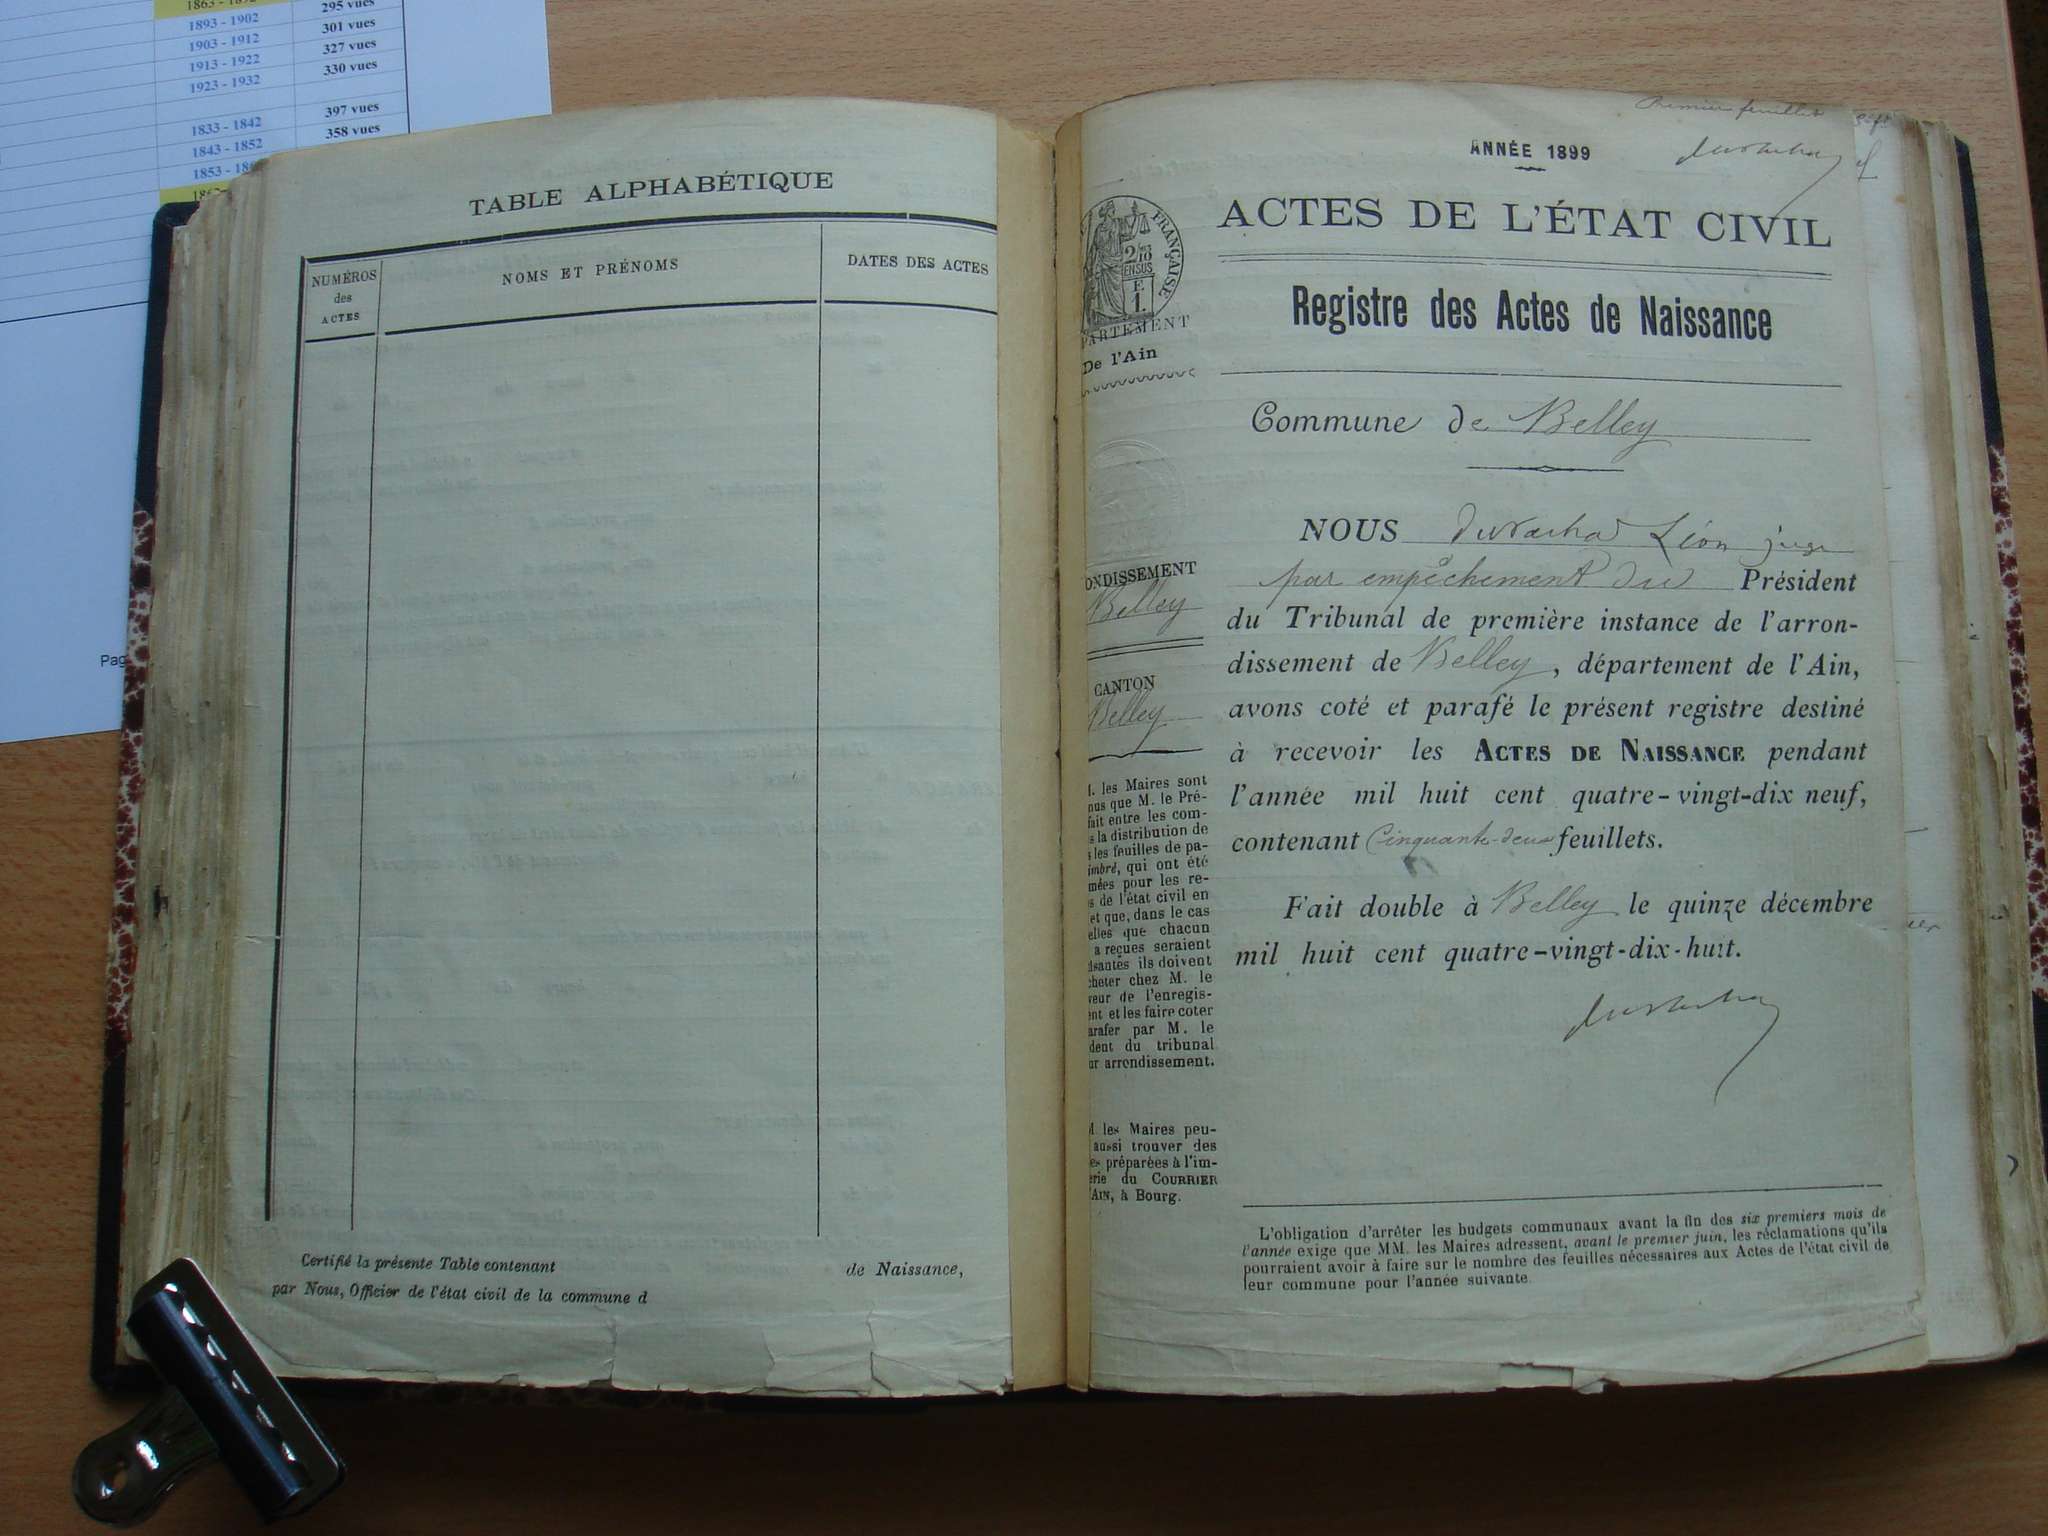 1863 - 1892 295 vues
1893 - 1902 301 vues
1903 - 1912 327 vues
1913 - 1922 330 vues
1923 - 1932
397 vues
1833 - 1842 358 vues
1843 - 1852
1853 - 18
Pag
TABLE ALPHABÉTIQUE
NUMÉROS
des
ACTES
NOMS ET PRÉNOMS
DATES DES ACTES
Certifié la présente Table contenant de Naissance,
par Nous, Officier de l'état civil de la commune d
Premier feuillet
ANNÉE 1899
FRANÇAISE
2/10
EN SUS
E
1.
PARTEMENT
De l'Ain
ACTES DE L'ÉTAT CIVIL
Registre des Actes de Naissance
Commune de Belley
ONDISSEMENT
Belley
CANTON
Belley
NOUS Léon juge
par empêchement du Président
du Tribunal de première instance de l'arron-
dissement de Belley, département de l'Ain,
avons coté et parafé le présent registre destiné
à recevoir les ACTES DE NAISSANCE pendant
l'année mil huit cent quatre-vingt-dix neuf,
contenant Cinquante-deux feuillets.
Fait double à Belley le quinze décembre
mil huit cent quatre-vingt-dix-huit.
M. les Maires sont
nus que M. le Pré-
fait entre les com-
s la distribution de
s les feuilles de pa-
imbré, qui ont été
mées pour les re-
s de l'état civil en
et que, dans le cas
elles que chacun
a reçues seraient
isantes ils doivent
cheter chez M. le
veur de l'enregis-
ent et les faire coter
arafer par M. le
dent du tribunal
ur arrondissement.
M. les Maires peu-
aussi trouver des
es préparées à l'im-
erie du COURRIER
'AIN, à Bourg.
L'obligation d'arrêter les budgets communaux avant la fin des six premiers mois de
l'année exige que MM. les Maires adressent, avant le premier juin, les réclamations qu'ils
pourraient avoir à faire sur le nombre des feuilles nécessaires aux Actes de l'état civil de
leur commune pour l'année suivante.